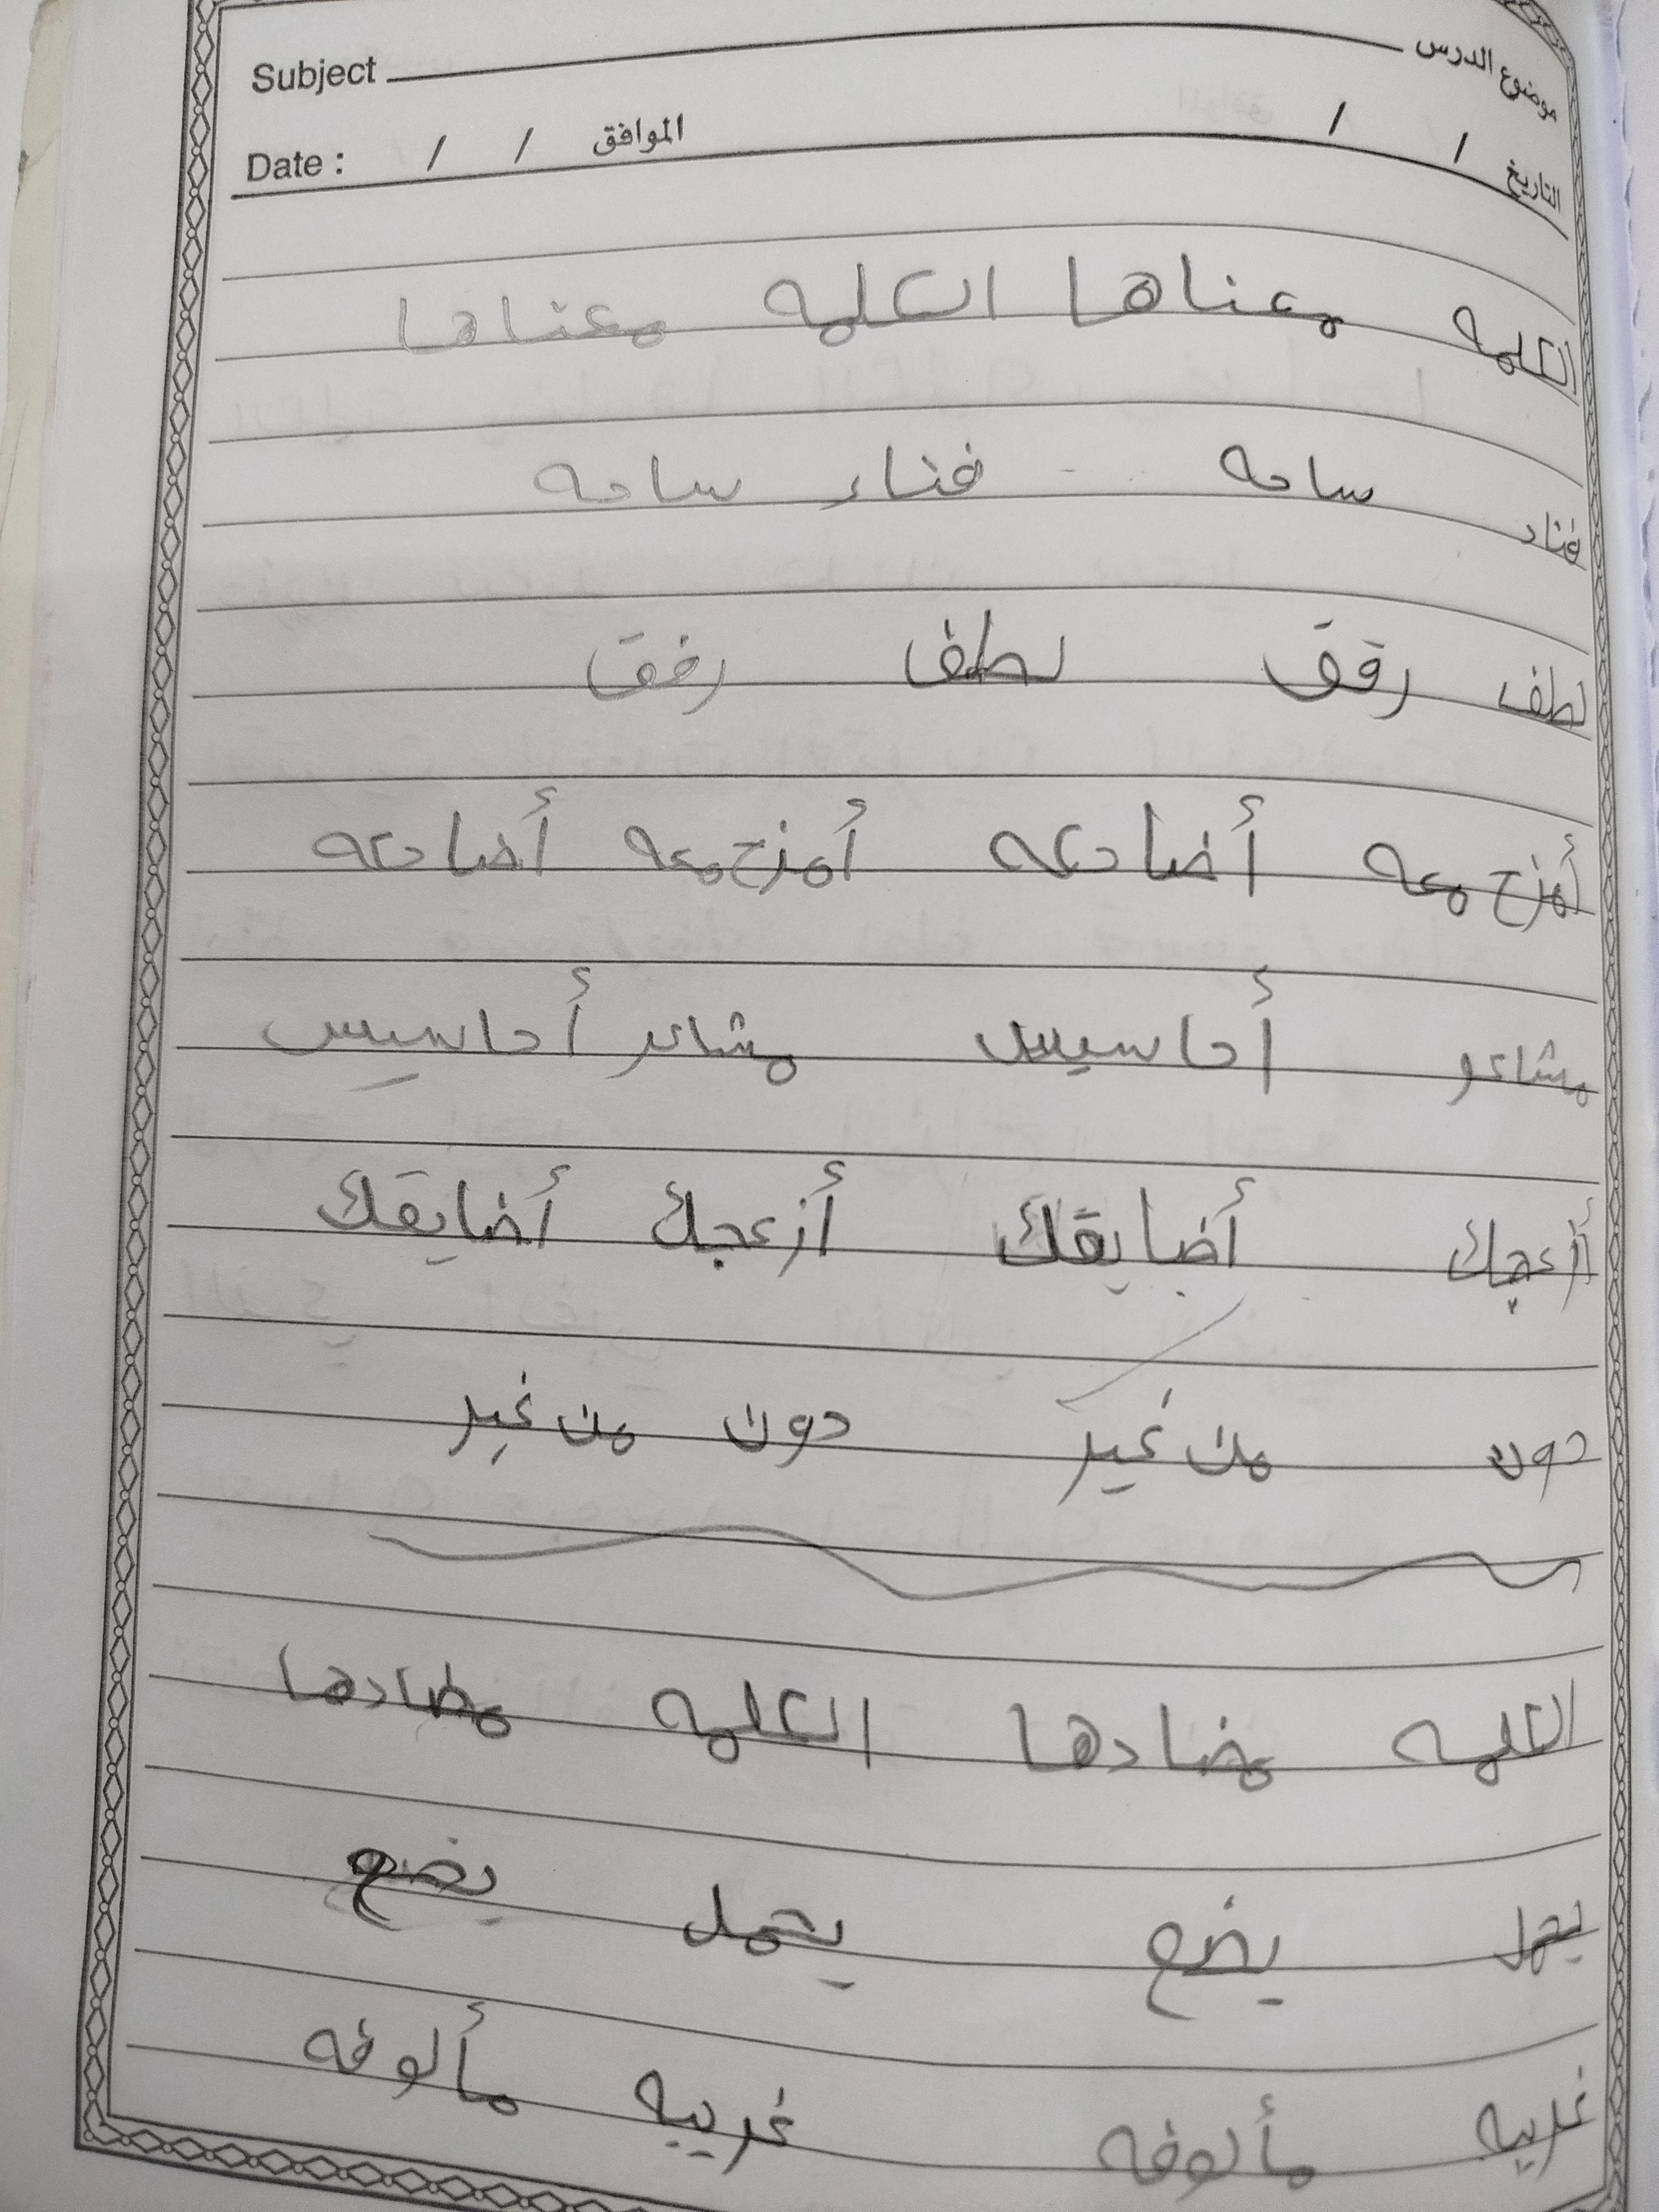 Subject موضوع الدرس
Date : / / الموافق / / التاريخ
الكلمه معناها الكلمه معناها
فناء ساحه فناء ساحه
لطف رقق لطف رفق
أمزح معه أضاحكه أمزح معه أضاحكه
مشاعر أحاسيس مشاعر أحاسيس
أزعجك أضايقك أزعجك أضايقك
دون من غير دون من غير
الكلمه مضادها الكلمه مضادها
يحمل يضع يحمل يضع
غريبه مألوفه غريبه مألوفه